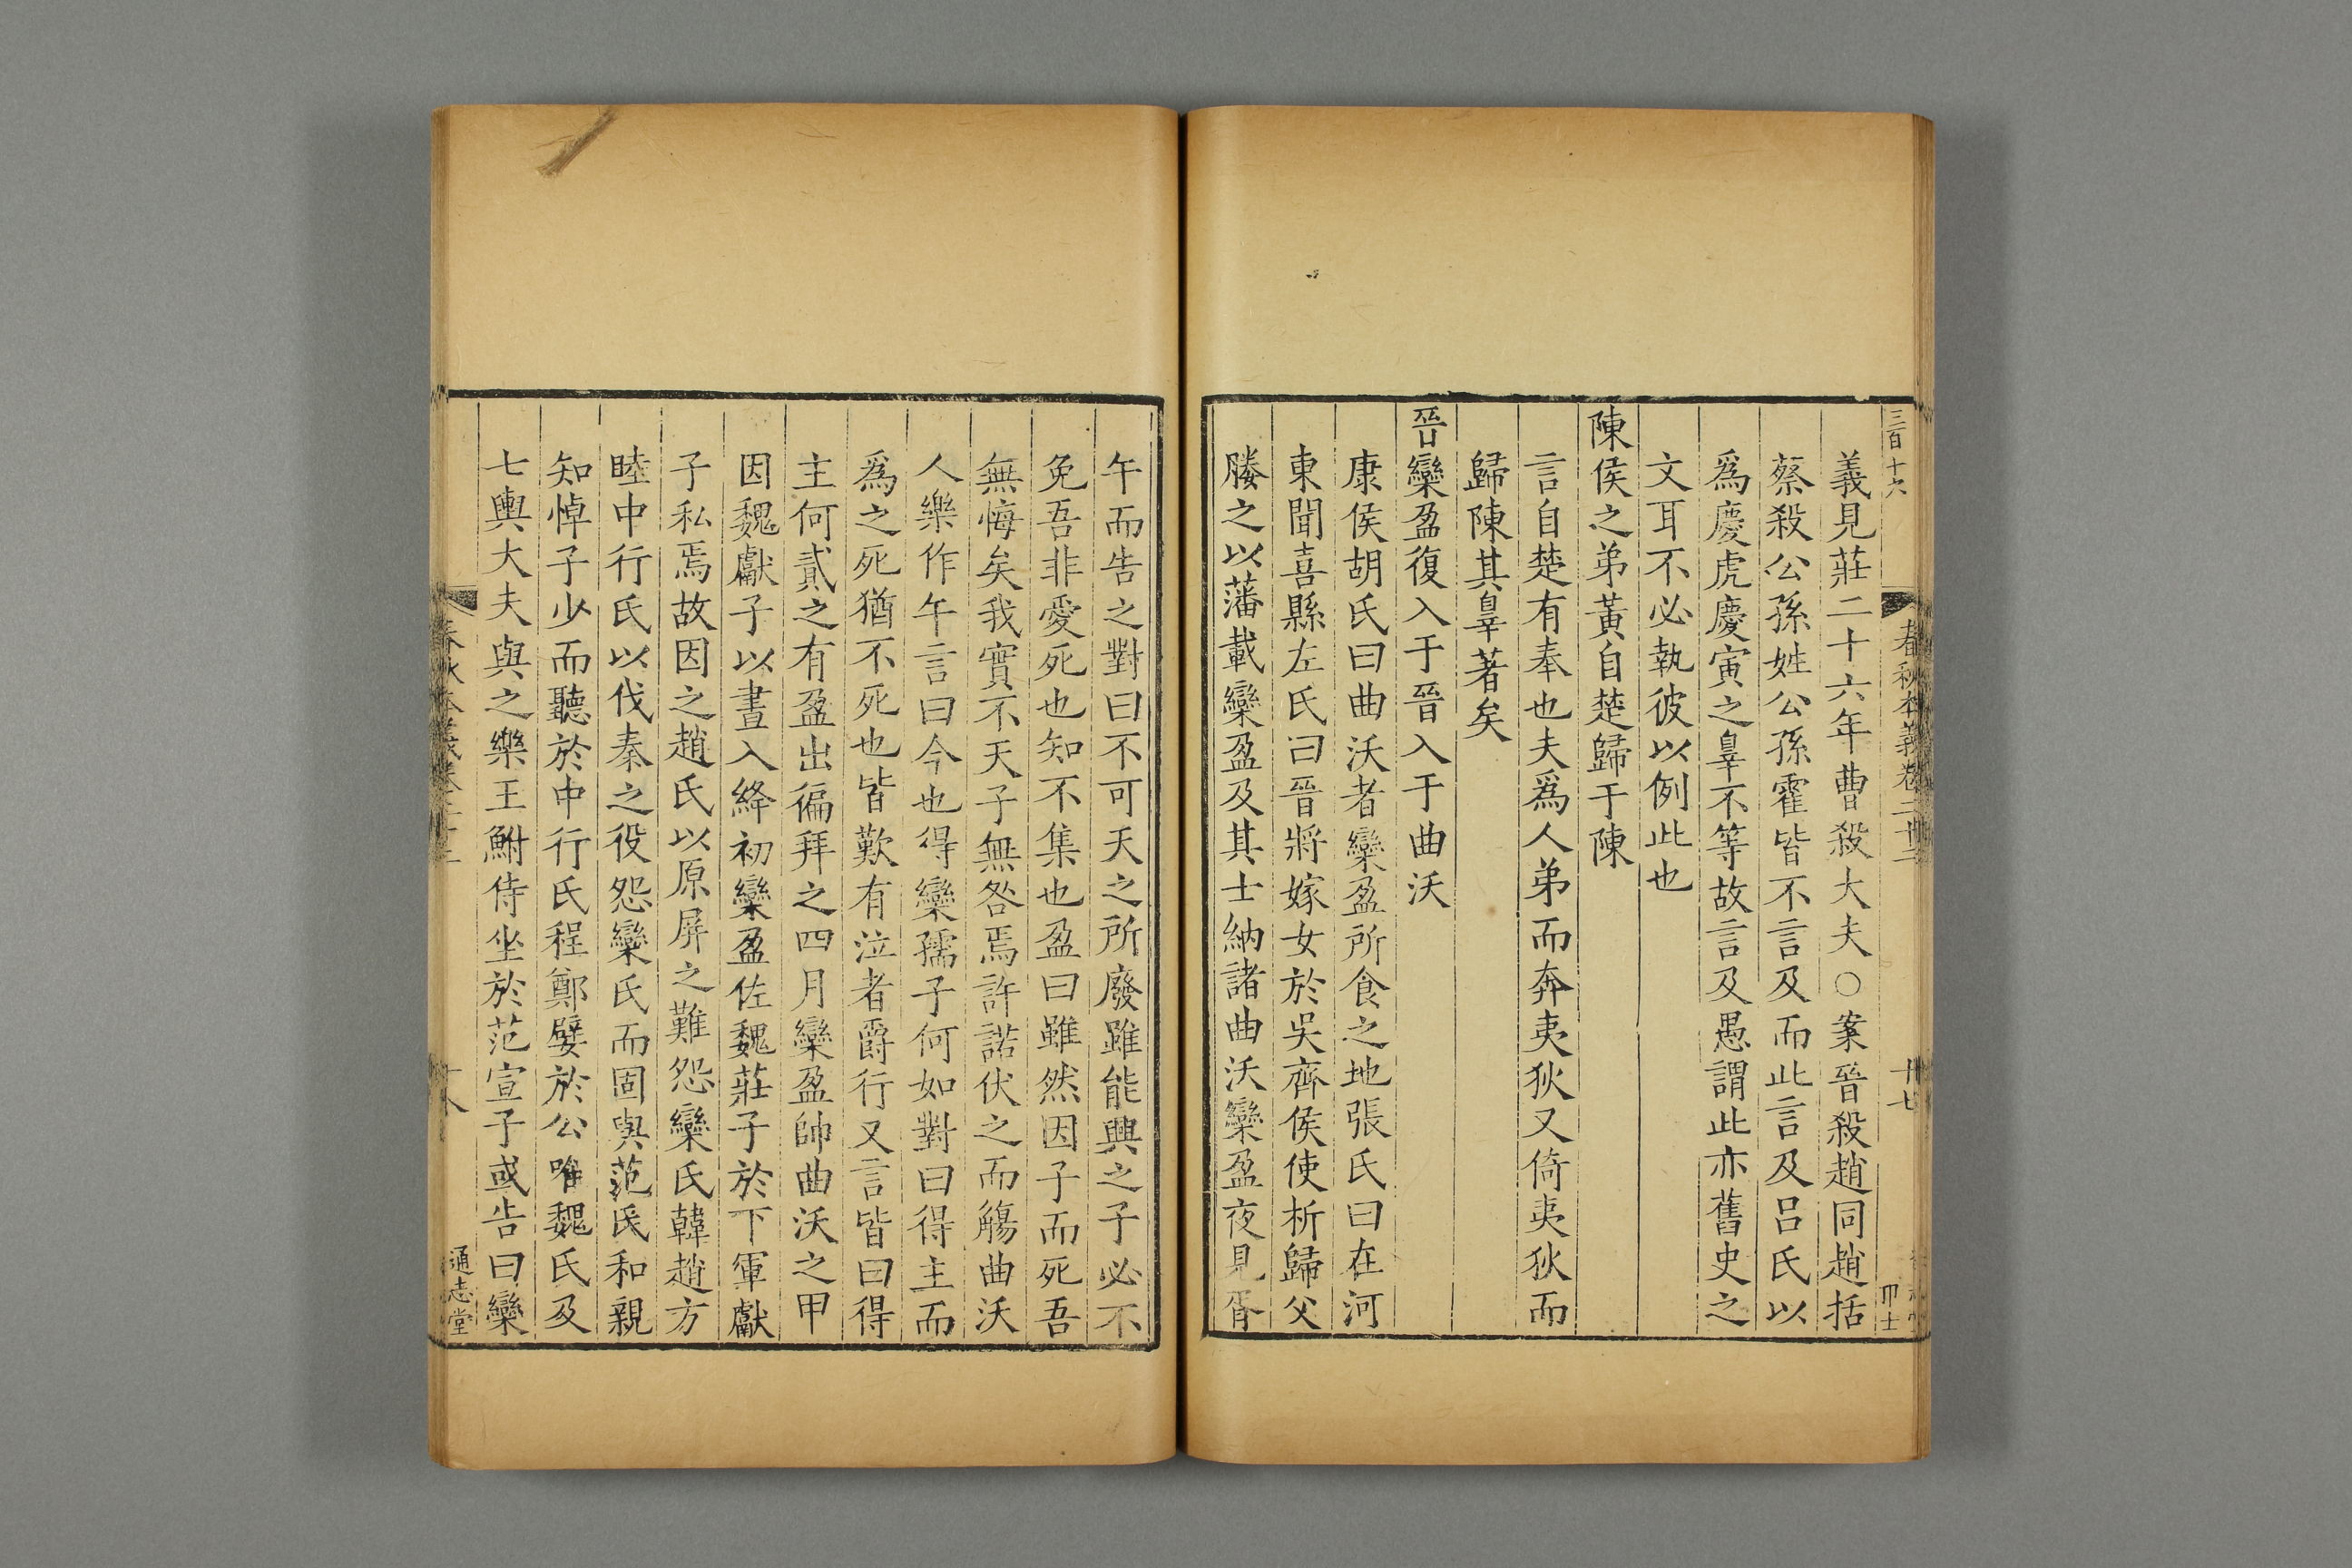 三百十六
春秋本義卷二十二
十七
義見莊二十六年曹殺大夫○案晉殺趙同趙括
蔡殺公孫姓公孫霍皆不言及而此言及呂氏以
爲慶虎慶寅之辠不等故言及愚謂此亦舊史之
文耳不必執彼以例此也
陳侯之弟黃自楚歸于陳
言自楚有奉也夫爲人弟而奔夷狄又倚夷狄而
歸陳其辠著矣
晉欒盈復入于晉入于曲沃
康侯胡氏曰曲沃者欒盈所食之地張氏曰在河
東聞喜縣左氏曰晉將嫁女於吳齊侯使析歸父
媵之以藩載欒盈及其士納諸曲沃欒盈夜見胥
午而告之對曰不可天之所廢雖能興之子必不
免吾非愛死也知不集也盈曰雖然因子而死吾
無悔矣我實不天子無咎焉許諾伏之而觴曲沃
人樂作午言曰今也得欒孺子何如對曰得主而
爲之死猶不死也皆歎有泣者爵行又言皆曰得
主何貳之有盈出徧拜之四月欒盈帥曲沃之甲
因魏獻子以晝入絳初欒盈佐魏莊子於下軍獻
子私焉故因之趙氏以原屏之難怨欒氏韓趙方
睦中行氏以伐秦之役怨欒氏而固與范氏和親
知悼子少而聽於中行氏程鄭嬖於公唯魏氏及
七輿大夫與之樂王鮒侍坐於范宣子或告曰欒
春秋本義卷二十二
十八
通志堂